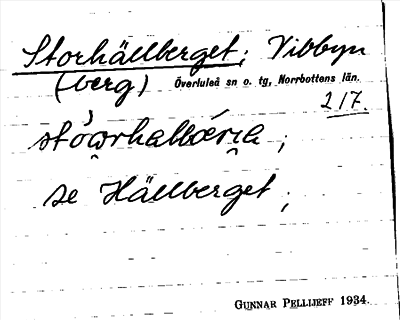 Storhällberget; Vibbyn
(berg) Överluleå sn o. tg, Norrbottens län.
217.
se Hällberget;
GUNNAR PELLIJEFF 1934.